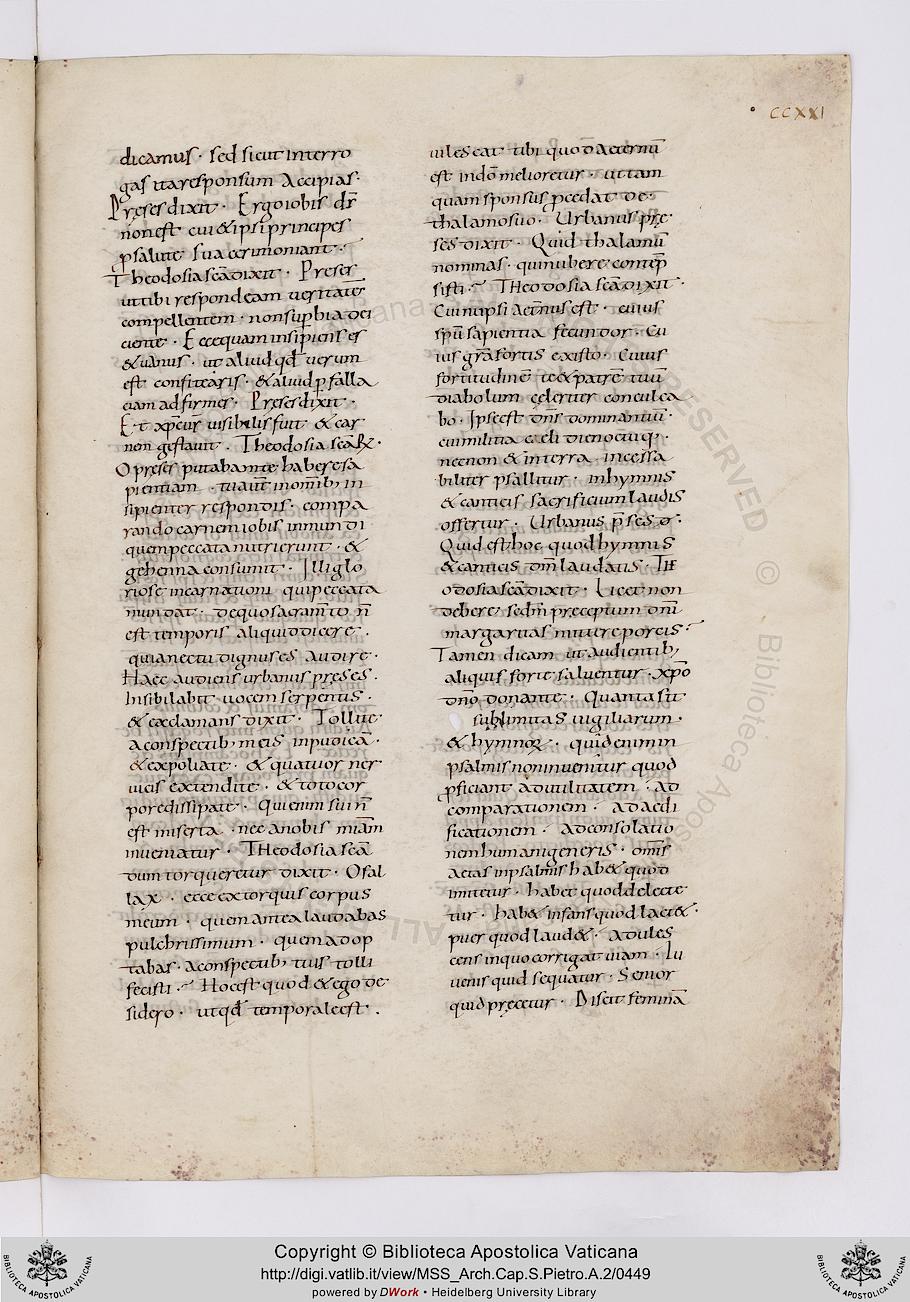 CCXXI
dicamus · sed sicut interro
gas ita responsum accipias ·
Preses dixit · Ergo iobis dr̄
non est cui & ipsi principes
p salute sua cerimoniant ·
Theodosia sc̄a dixit · Preses
ut tibi respondeam ueritatē
compellentem · non supbia dei
ciente · Ecce quam insipiens es
& uanus · ut aliud qd̄ uerum
est confitearis · & aliud p falla
ciam ad firmes · Preses dixit ·
Et xp̄c ur̄ uisibilis fuit & car
nem gestauit · Theodosia sc̄a R̄ ·
O preses putabam te habere sa
pientiam · tu aut̄ in omnib; in
sipienter respondis · compa
rando carnem iobis inmundi
quem peccata nutrierunt · &
gehenna consumit · Illi glo
riose incarnationi qui peccata
mundat · de quo sacram̄to n̄
est temporis aliquid dicere ·
quia nec tu dignus es audire ·
Haec audiens urbanus preses ·
Insibilabit uocem serpentis ·
& exclamans dixit · Tollite
a conspectib; meis inpudicā ·
& expoliate · & quatuor ner
uicis extendite · & toto cor
pore dissipate · Qui enim sui n̄
est miserta · nec a nobis miām
inueniatur · THeodosia sc̄a
dum torqueretur dixit · O fal
lax · ecce extorquis corpus
meum · quem antea laudabas
pulchrissimum · quem adop
tabas · a conspectib; tuis tolli
fecisti · Hoc est quod & ego de
sidero · ut qd̄ temporale est · .
uilescat tibi quod aeternū
est in dōm melioretur · ut tam
quam sponsus pcedat de
thalamo suo · Urbanus pre
ses dixit · Quid thalamū
nominas · qui nubere contēp
sisti · THeodosia sc̄a dixit ·
Cui nupsi aet̄nus est · cuius
spū sapientia fecundor · Cu
ius grā fortis existo · Cuius
fortitudinē te & patrē tuū
diabolum celeriter conculca
bo · Ipse est dn̄s dominantiū ·
cui militia caeli die noctuq; ·
necnon & in terra incessa
biliter psallitur · in hymnis
& canticis sacrificium laudis
offertur · Urbanus p̄ses d̄ ·
Quid est hoc quod hymnis
& canticis dm̄ laudatis · THe
odosia sc̄a dixit · Licet non
debere sedm̄ preceptum dn̄i
margaritas mittere porcis ·
Tamen dicam ut audientib;
aliquis forte saluentur · xp̄o
dn̄o donante · Quanta sit
sublimitas uigiliarum ·
& hymnoꝝ · quid enim in
psalmis non inuenitur quod
pficiant ad utilitatem · ad
comparationem · ad aedi
ficationem · ad consolatio
nem humani generis · om̄is
aetas in psalmis hab& quod
imitetur · habet quod delecte
tur · hab& infans quod lact& ·
puer quod laud& · adules
cens in quo corrigat uiam · Iu
uenis quid sequatur · Senior
quid precetur · Discit feminā
Copyright © Biblioteca Apostolica Vaticana
http://digi.vatlib.it/view/MSS_Arch.Cap.S.Pietro.A.2/0449
powered by DWork • Heidelberg University Library